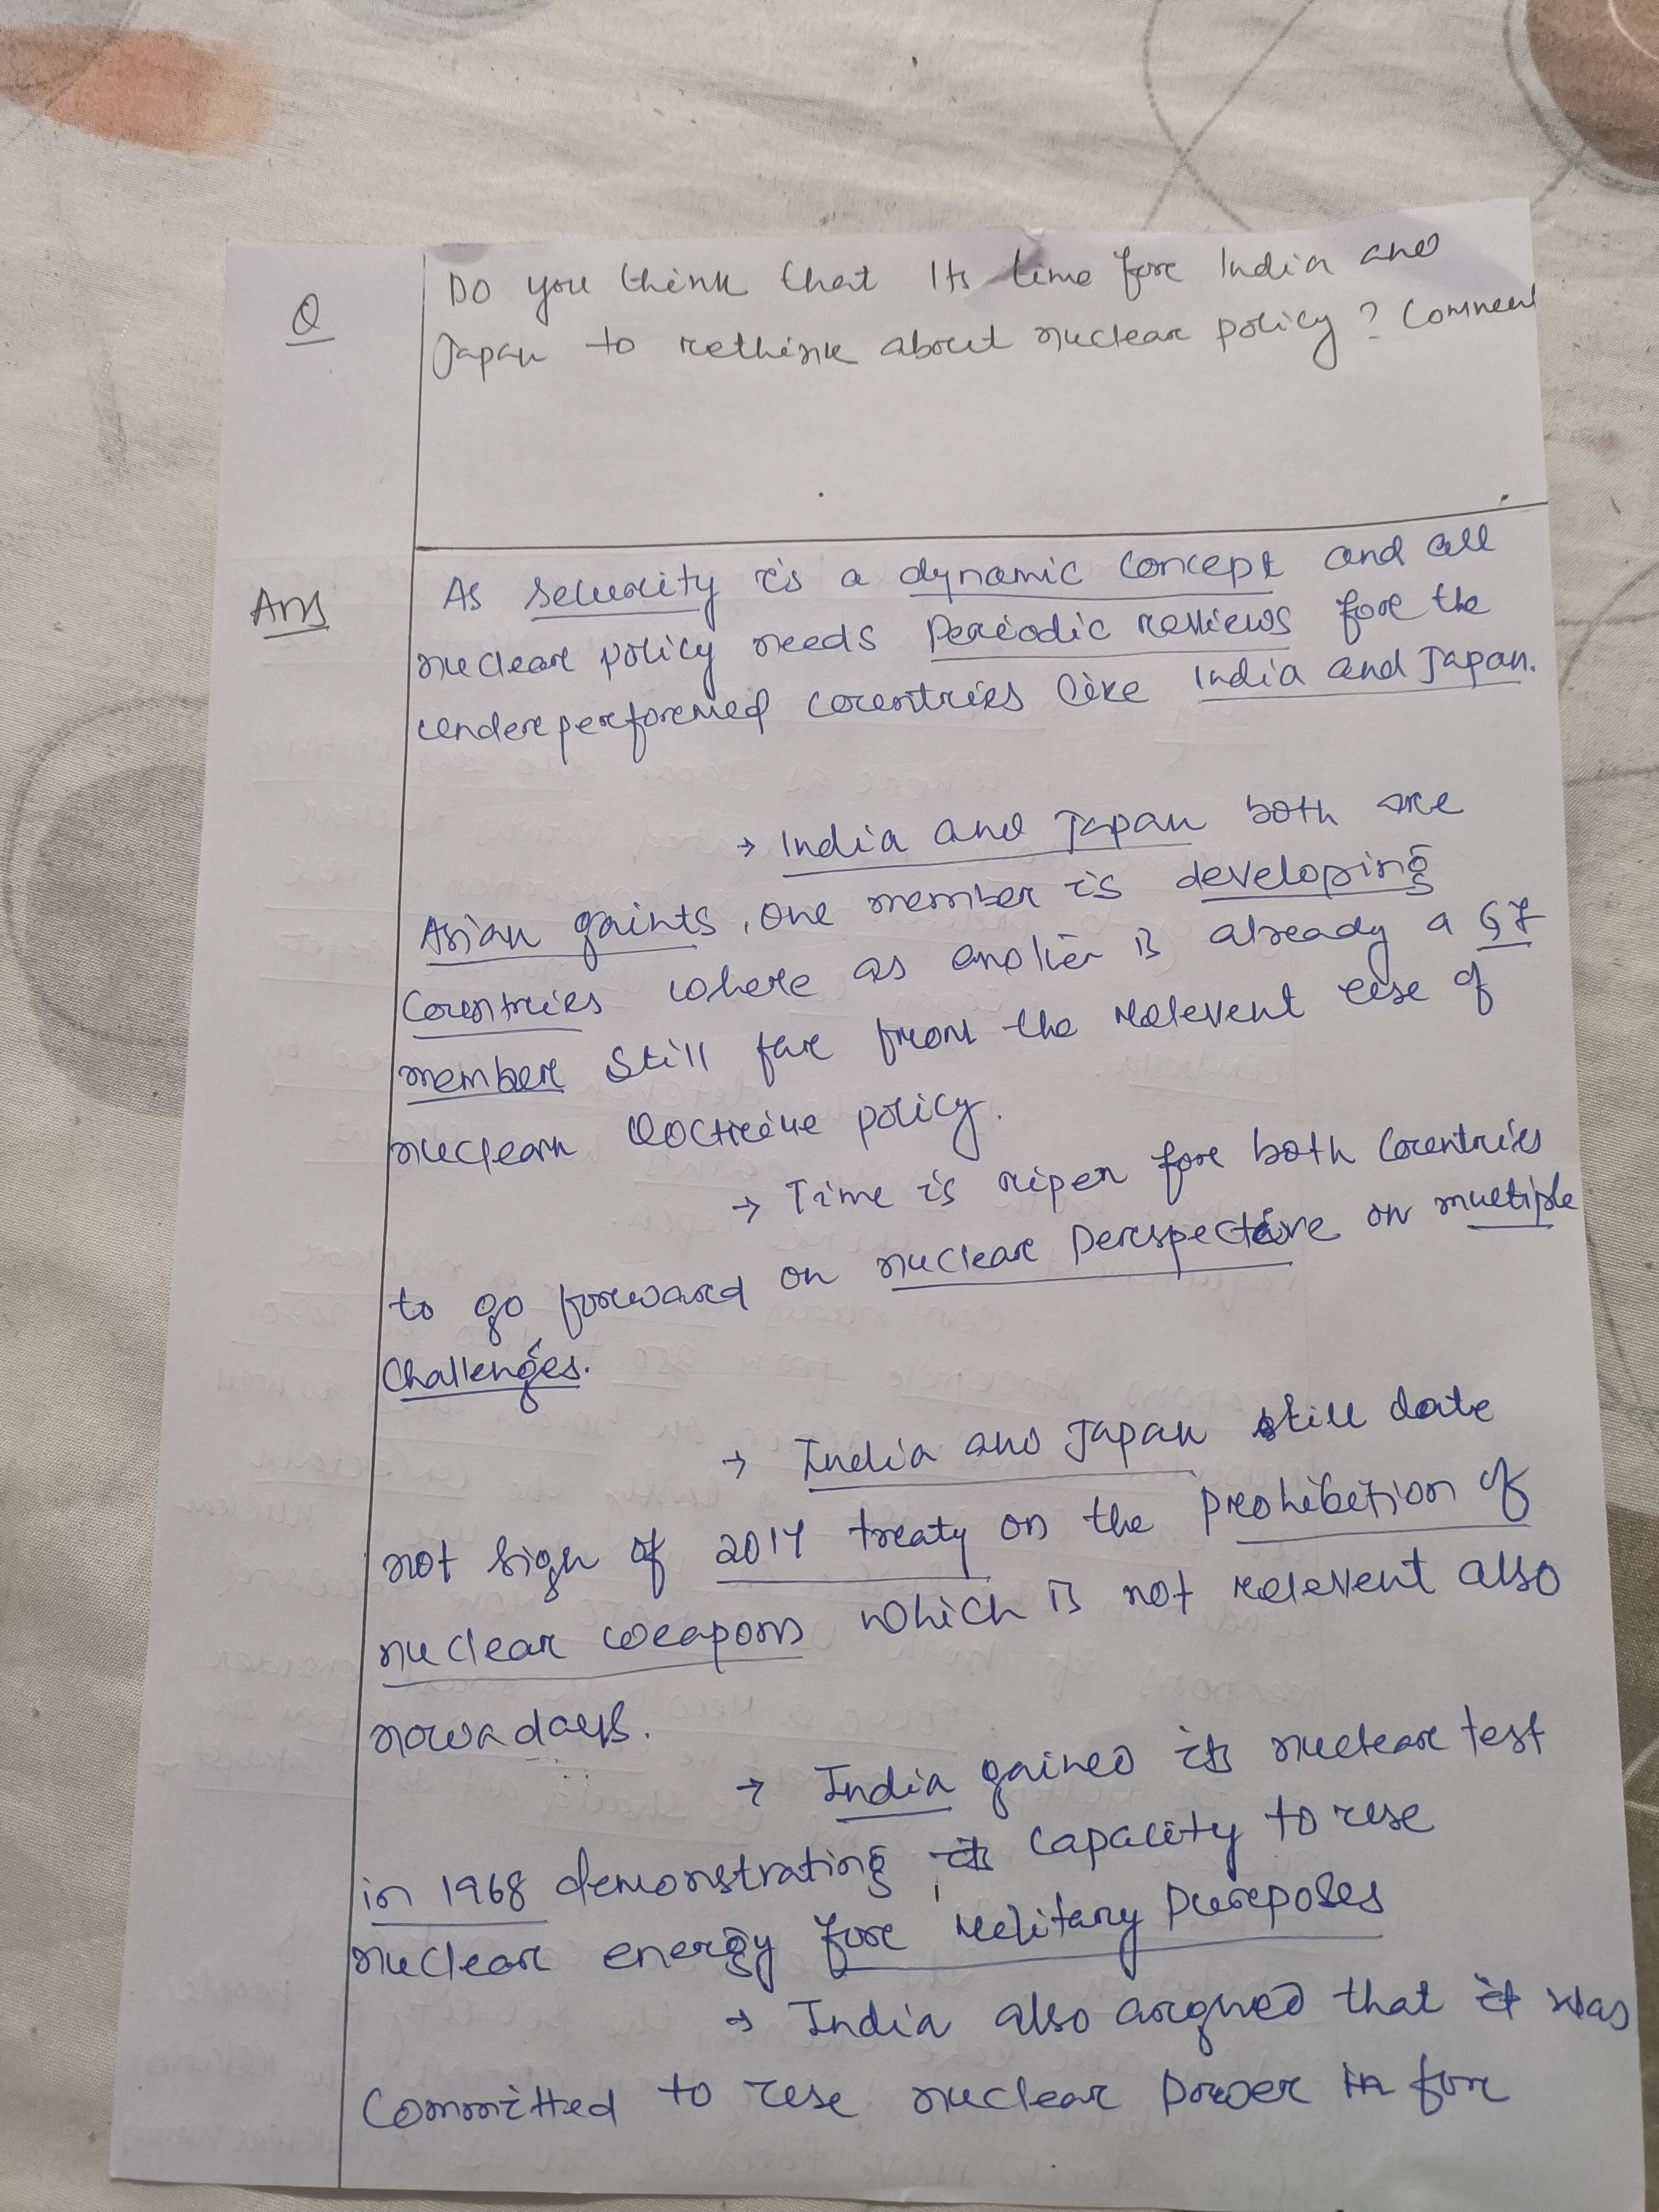 Q
Do you think that Its time fore India and
Japan to rethink about nuclear policy? Comment
Ans
As security is a dynamic concept and all
nuclear policy needs Periodic reviews fore the
underperformed countries like India and Japan.
→ India and Japan both are
Asian gaints, one member is developing
Countries where as another is already a G7
member still far from the relevent use of
nuclear Doctrine policy.
→ Time is riper fore both Countries
to go forward on nuclear Perspective on multiple
Challenges.
→ India and Japan still date
not sign of 2017 treaty on the Prohibition of
nuclear weapons which is not relevent also
nowadays.
→ India gained its nuclear test
in 1968 demonstrating its capacity to use
nuclear energy fore military Purposes
→ India also argued that it was
Committed to use nuclear power in for